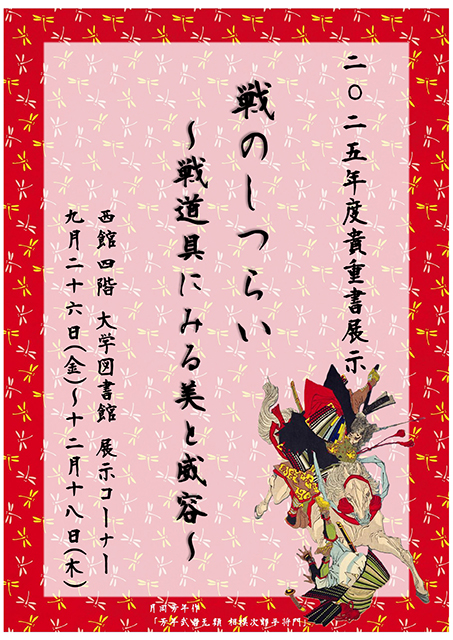 二〇二五年度貴重書展示
戦のしつらい
～戦道具にみる美と威容～
西館四階 大学図書館 展示コーナー
九月二十六日(金)～十二月十八日(木)
月岡芳年作
「芳年武者无類 相模次郎平将門」